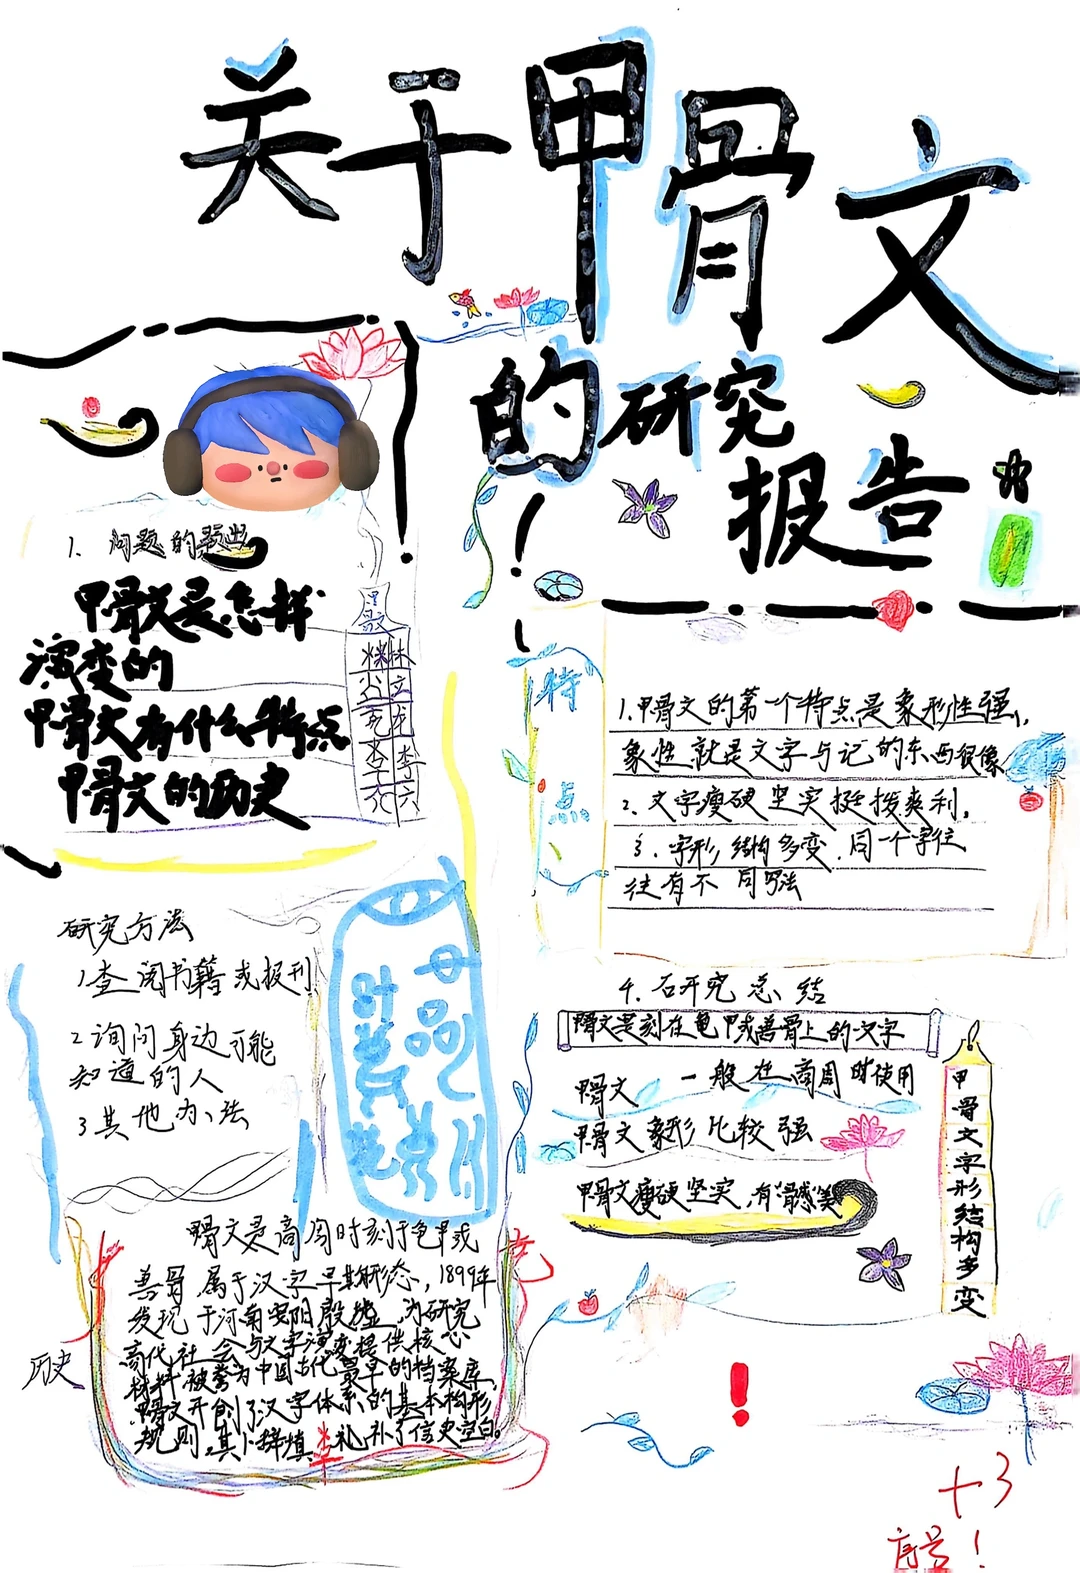 关于甲骨文
的研究
报告
！
1. 问题的提出
甲骨文是怎样
演变的
甲骨文有什么特点
甲骨文的历史
特点
1.甲骨文的第一个特点是象形性强,
象性就是文字与记的东西很像
2. 文字瘦硬坚实挺拔爽利,
3. 字形结构多变,同一个字往
往有不同写法
研究方法
1查阅书籍或报刊
2询问身边可能
知道的人
3其他办法
4. 研究总结
甲骨文是刻在龟甲或兽骨上的文字
甲骨文 一般在商周时使用
甲骨文象形比较强
甲骨文瘦硬坚实,有骨感美
甲骨文字形结构多变
历史
甲骨文是商周时刻于龟甲或
兽骨,属于汉字早期形态,1899年
发现于河南安阳殷墟,为研究
商代社会与文字演变提供核心
材料被誉为中国古代最早的档案库,
甲骨文开创了汉字体系的基本构形
规则,其卜辞填 礼补了信史空白。
！
+3
序号！